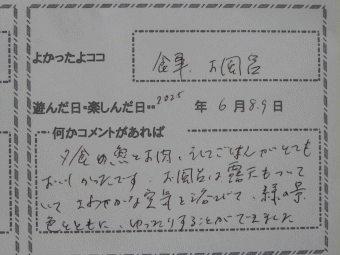 よかったよココ 食事、お風呂
遊んだ日・楽しんだ日・・2025 年 6月8.9日
何かコメントがあれば
夕食の魚とお肉、そしてごはんがとても
おいしかったです。お風呂は露天もついて
いてさわやかな空気を浴びて、緑の景
色とともに、ゆったりすることができました